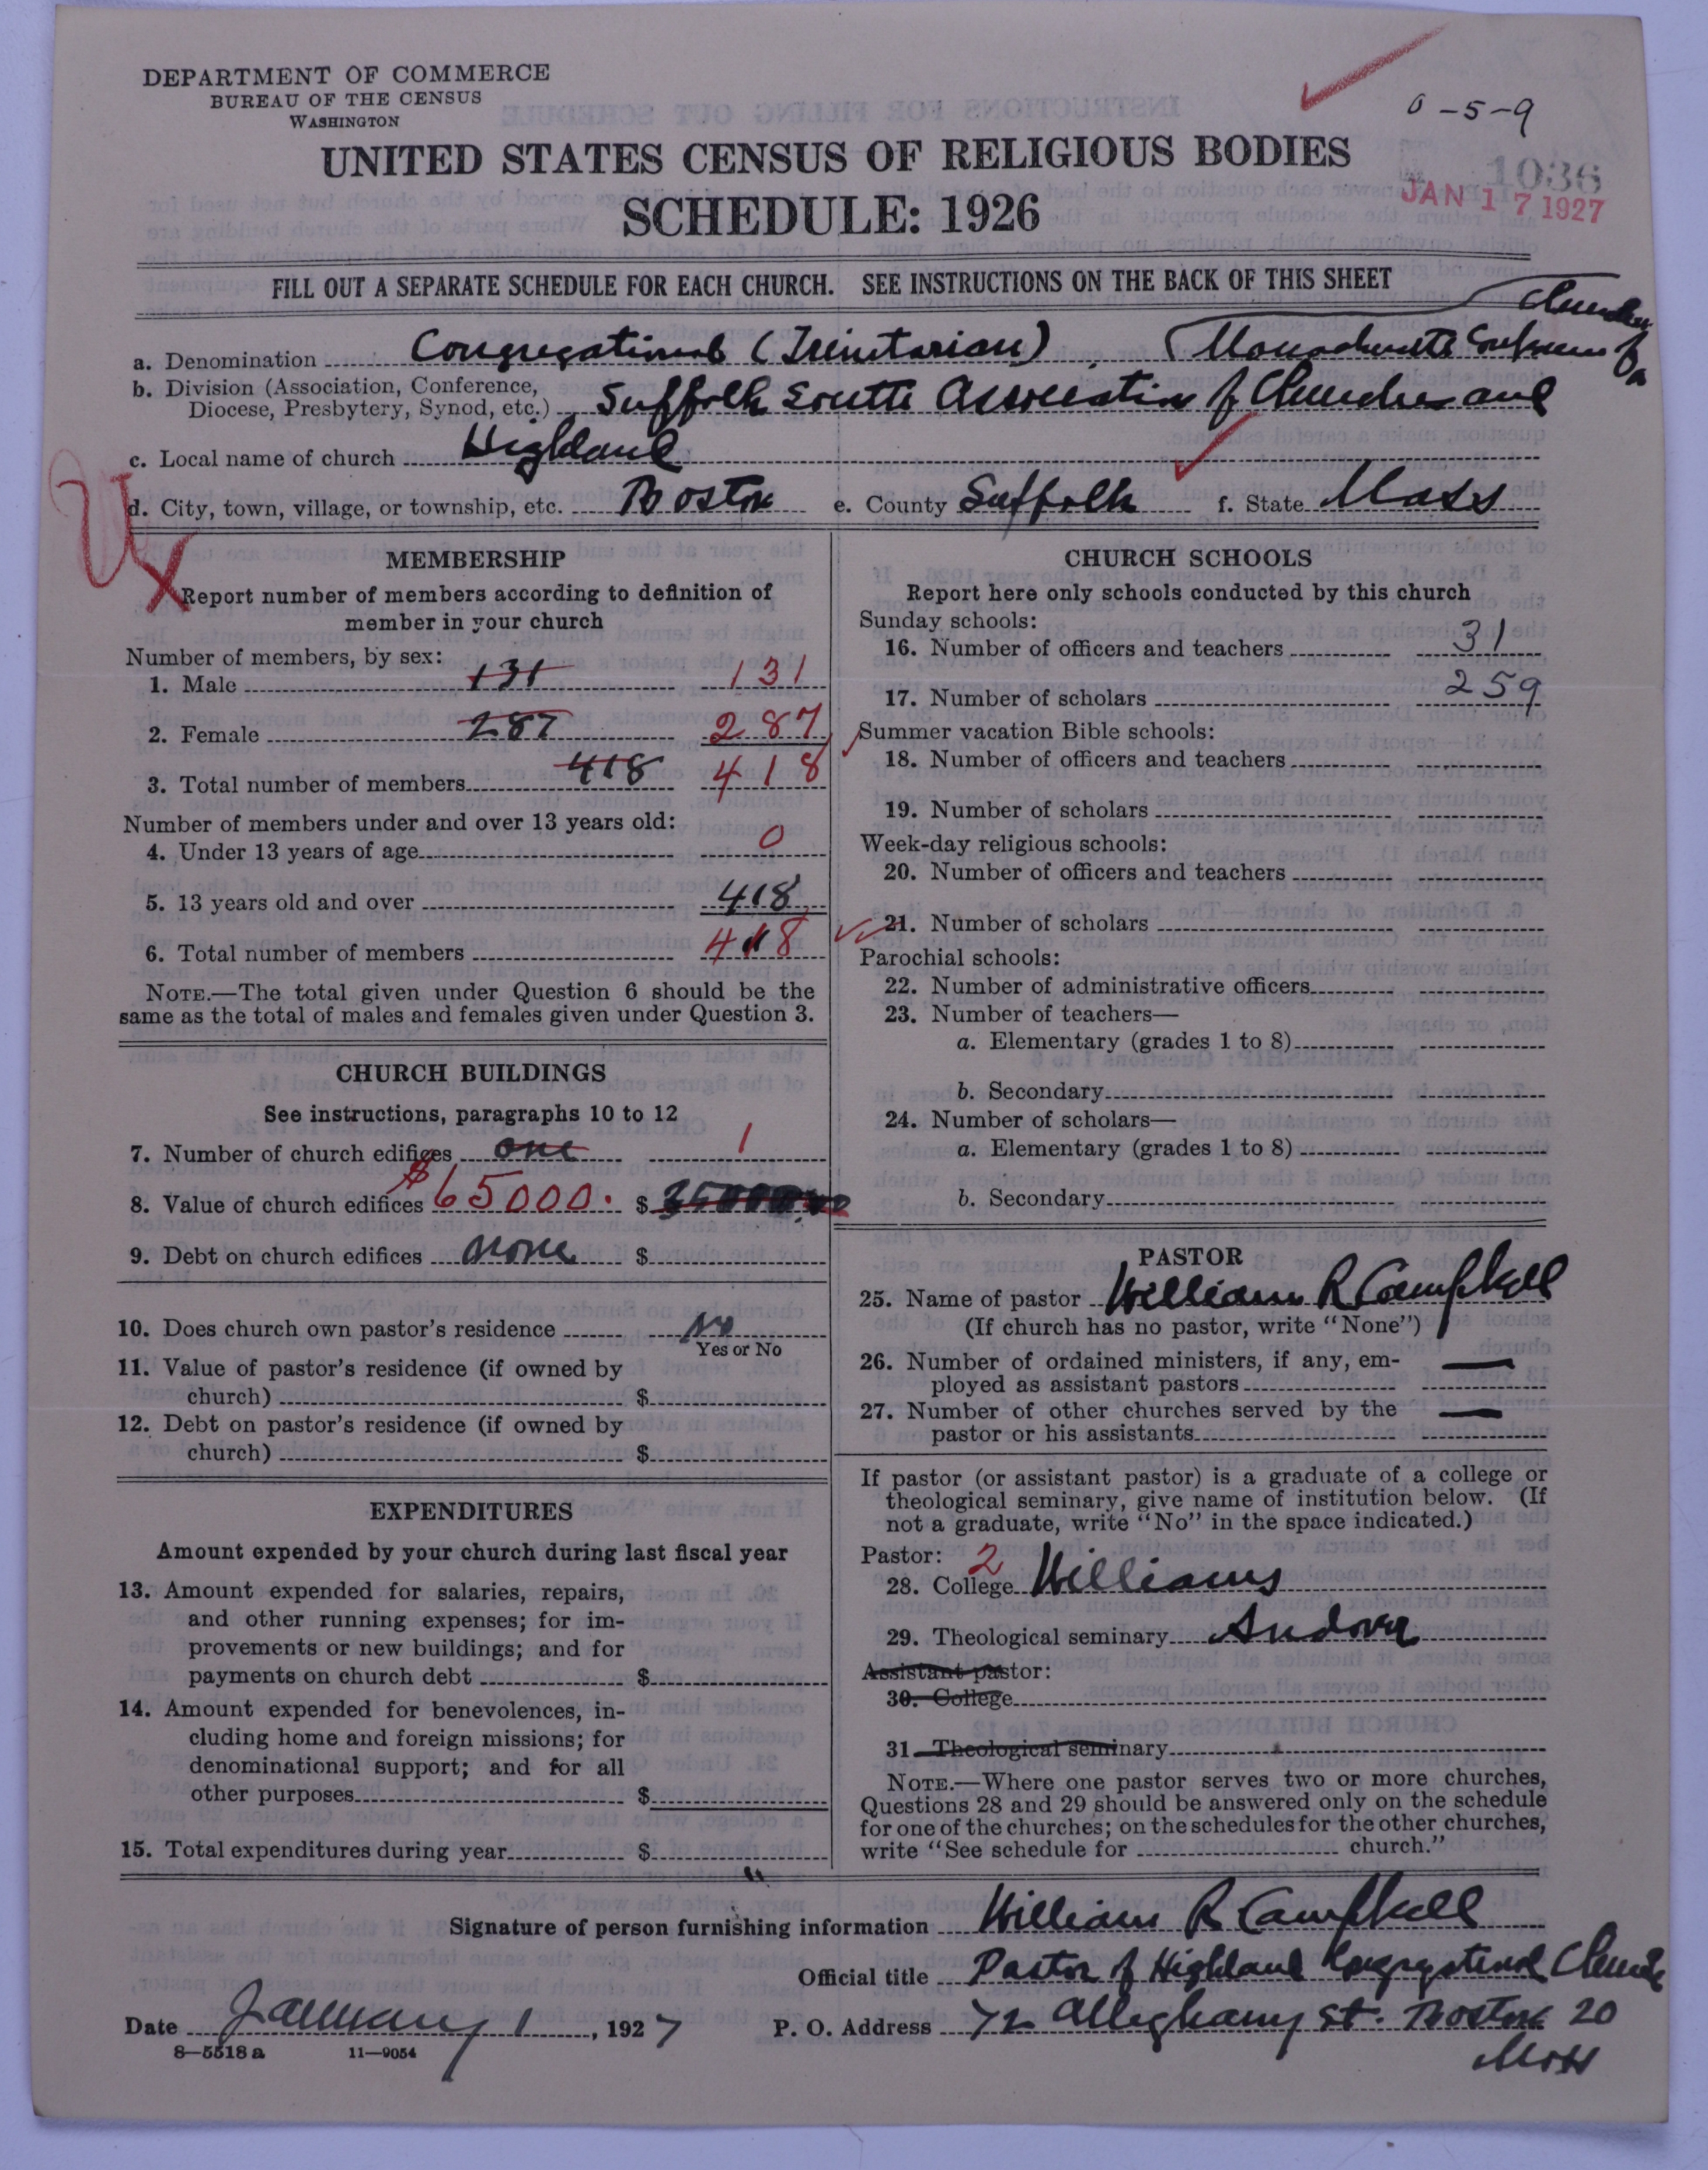 DEPARTMENT OF COMMERCE
BUREAU OF THE CENSUS
WASHINGTON
0-5-9
UNITED STATES CENSUS OF RELIGIOUS BODIES
1036
SCHEDULE: 1926
JAN 17 1927
FILL OUT A SEPARATE SCHEDULE FOR EACH CHURCH. SEE INSTRUCTIONS ON THE BACK OF THIS SHEET
a. Denomination Congregational (Trinitarian)
b. Division (Association, Conference,
Diocese, Presbytery, Synod, etc.) Suffolk South Association of Churches and
c. Local name of church Highland
d. City, town, village, or township, etc. Boston e. County Suffolk f. State Mass
MEMBERSHIP
Report number of members according to definition of
member in your church
Number of members, by sex:
1. Male 131 131
2. Female 287 287
3. Total number of members 418 418
Number of members under and over 13 years old:
4. Under 13 years of age 0
5. 13 years old and over 418
6. Total number of members 418
NOTE.—The total given under Question 6 should be the
same as the total of males and females given under Question 3.
CHURCH BUILDINGS
See instructions, paragraphs 10 to 12
7. Number of church edifices one 1
8. Value of church edifices $65000. $
9. Debt on church edifices none $
10. Does church own pastor's residence No
Yes or No
11. Value of pastor's residence (if owned by
church) $
12. Debt on pastor's residence (if owned by
church) $
EXPENDITURES
Amount expended by your church during last fiscal year
13. Amount expended for salaries, repairs,
and other running expenses; for im-
provements or new buildings; and for
payments on church debt $
14. Amount expended for benevolences, in-
cluding home and foreign missions; for
denominational support; and for all
other purposes $
15. Total expenditures during year $
CHURCH SCHOOLS
Report here only schools conducted by this church
Sunday schools:
16. Number of officers and teachers 31
17. Number of scholars 259
Summer vacation Bible schools:
18. Number of officers and teachers
19. Number of scholars
Week-day religious schools:
20. Number of officers and teachers
21. Number of scholars
Parochial schools:
22. Number of administrative officers
23. Number of teachers—
a. Elementary (grades 1 to 8)
b. Secondary
24. Number of scholars—
a. Elementary (grades 1 to 8)
b. Secondary
PASTOR
25. Name of pastor William R Campbell
(If church has no pastor, write "None")
26. Number of ordained ministers, if any, em-
ployed as assistant pastors —
27. Number of other churches served by the
pastor or his assistants —
If pastor (or assistant pastor) is a graduate of a college or
theological seminary, give name of institution below. (If
not a graduate, write "No" in the space indicated.)
Pastor: 2
28. College Williams
29. Theological seminary Andover
Assistant pastor:
30. College
31. Theological seminary
NOTE.—Where one pastor serves two or more churches,
Questions 28 and 29 should be answered only on the schedule
for one of the churches; on the schedules for the other churches,
write "See schedule for church."
Signature of person furnishing information William R Campbell
Official title Pastor of Highland Congregational Church
Date January 1, 1927 P. O. Address 72 Alleghany St. Boston 20
Mass
8—5518a 11—9054